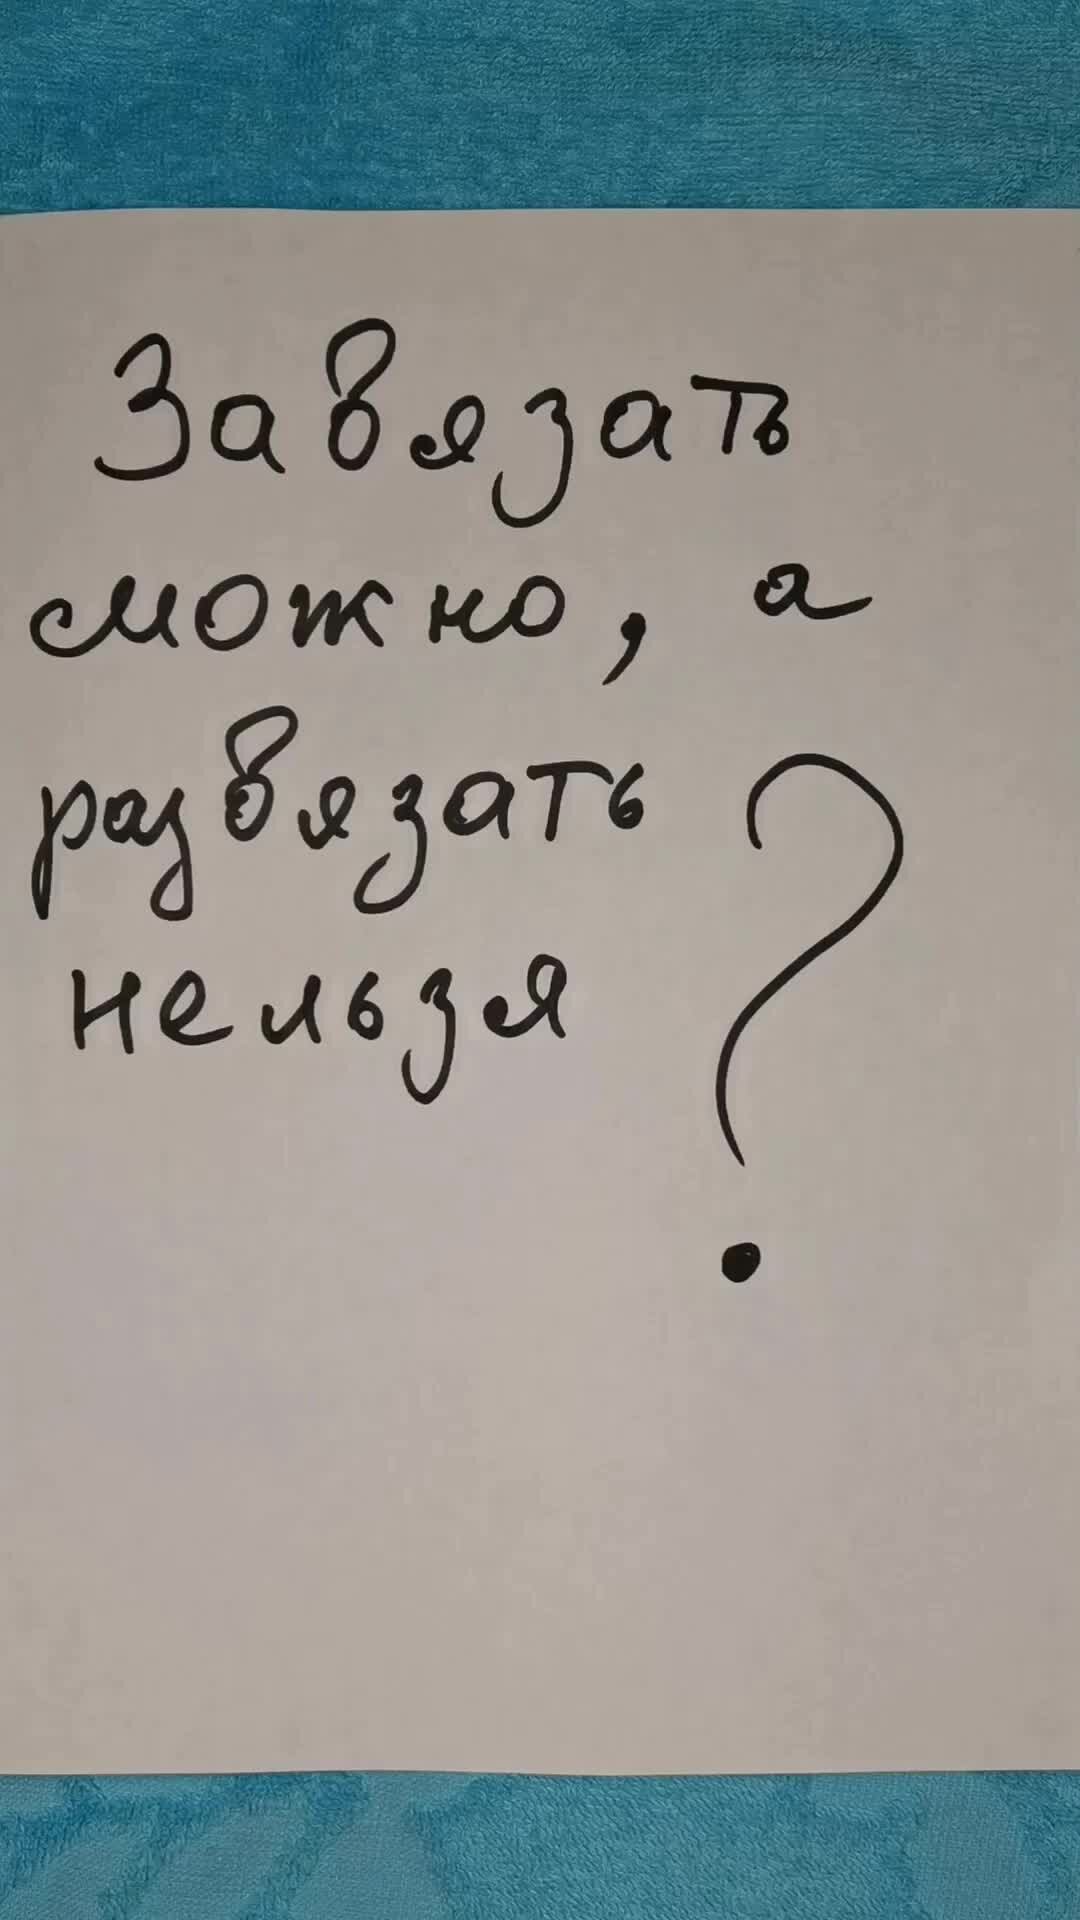 Завязать
можно, а
развязать
нельзя ?